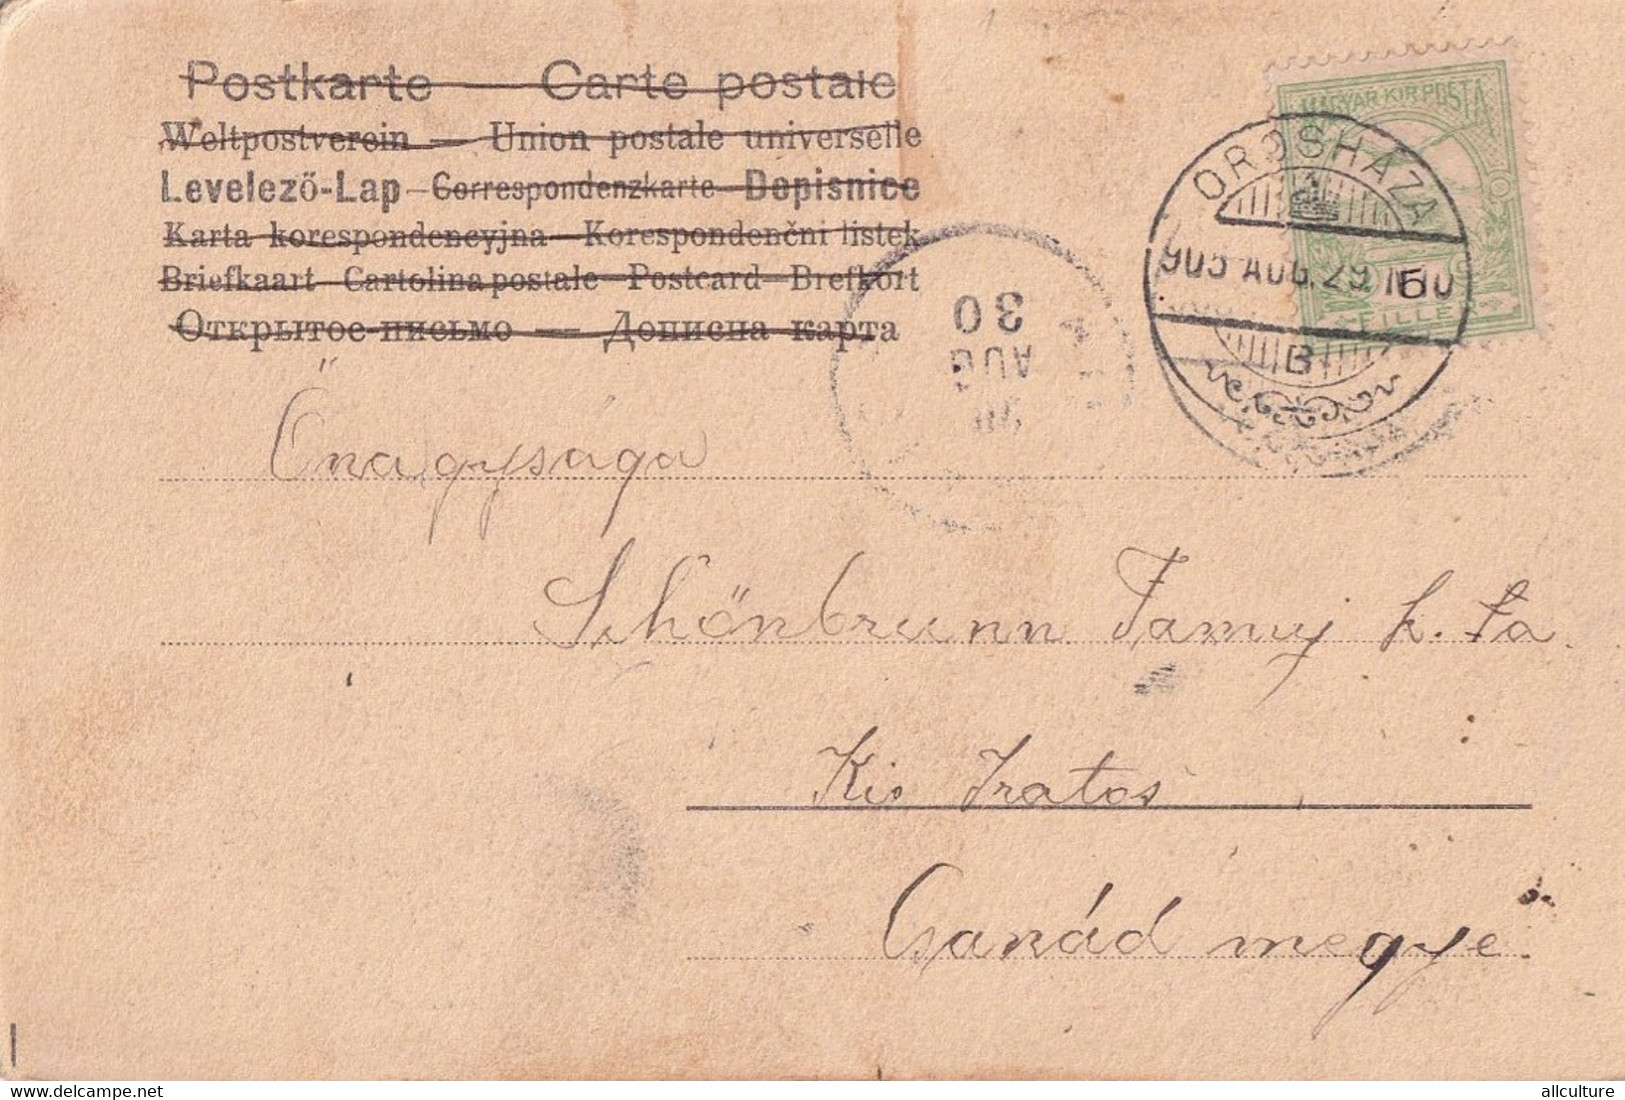 Postkarte — Carte postale
Weltpostverein — Union postale universelle
Levelező-Lap — Correspondenzkarte — Dopisnice
Karta korespondencyjna — Korespondenčni listek
Briefkaart — Cartolina postale — Postcard — Brefkort
Открытое письмо — Дописна карта
MAGYAR KIR. POSTA
5
FILLÉR
OROSHÁZA
905 AUG. 29.
B
30
AUG
Őnagysága
Schönbrunn Fanny k. fa
Kis Iratos
Csanád megye
delcampe.net
allculture